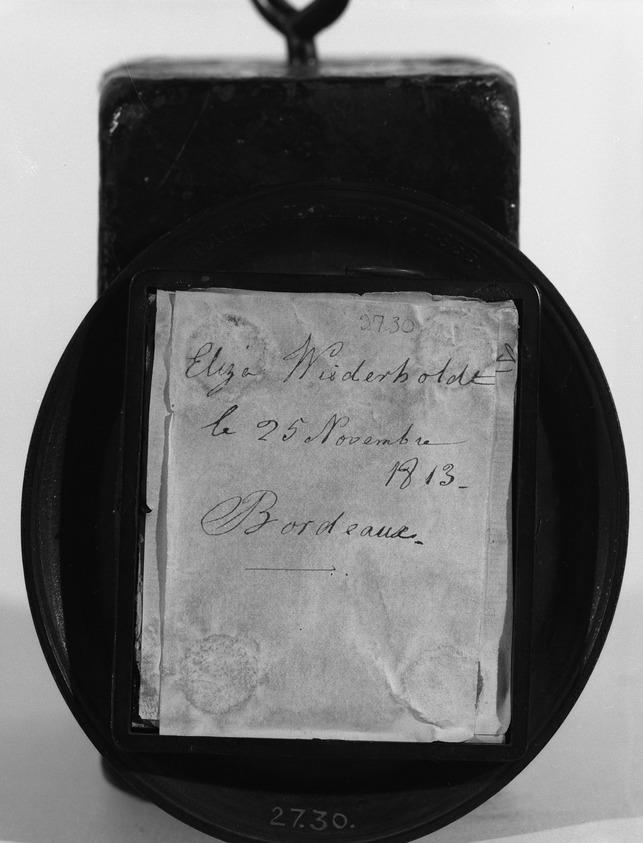 27.30
Eliza Wiederholdt
le 25 Novembre
1813-
Bordeaux.
27.30.